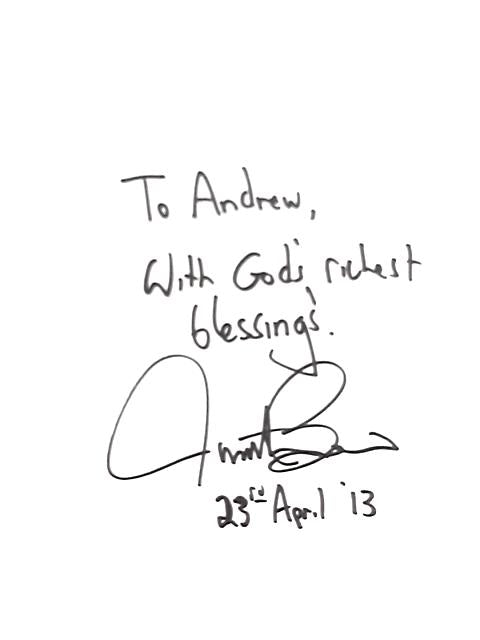 To Andrew,
With God's richest
blessings.
23rd April '13